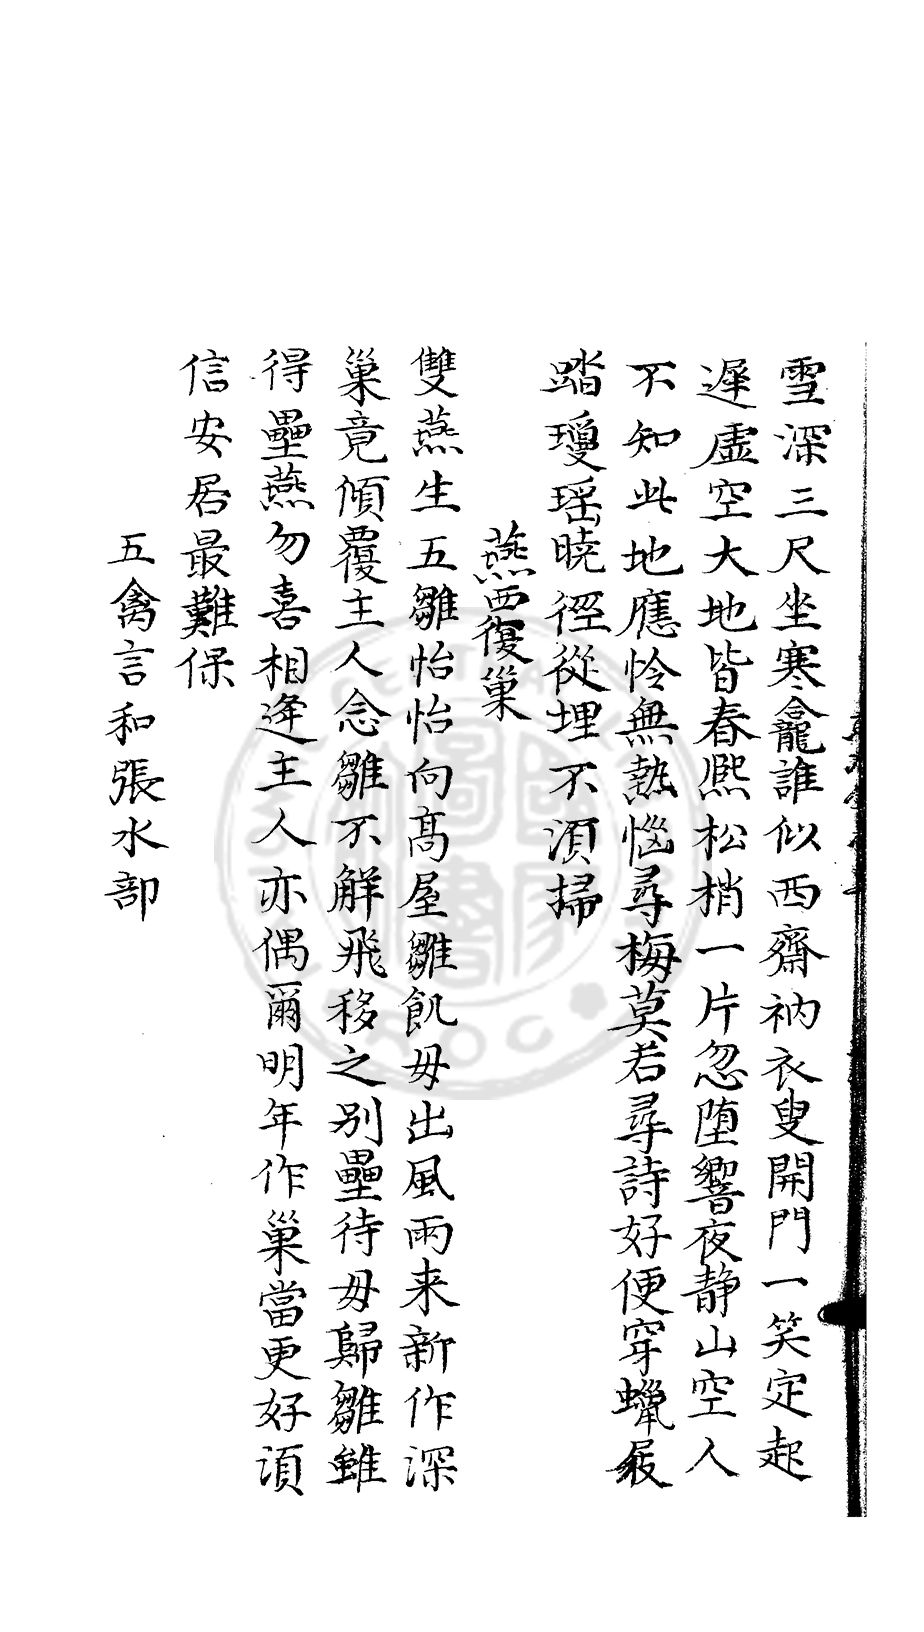 雪深三尺坐寒龕誰似西齋衲衣叟開門一笑定起
遲虛空大地皆春熈松梢一片忽墮響夜靜山空人
不知此地應怜無熱惱尋梅莫若尋詩好便穿蠟屐
踏瓊瑶曉徑從埋不須掃
燕西復巢
雙燕生五雛怡怡向髙屋雛飢毋出風雨来新作深
巢竟傾覆主人念雛不觧飛移之别壘待毋歸雛雖
得壘燕勿喜相逢主人亦偶爾明年作巢當更好須
信安居最難保
五禽言和張水部